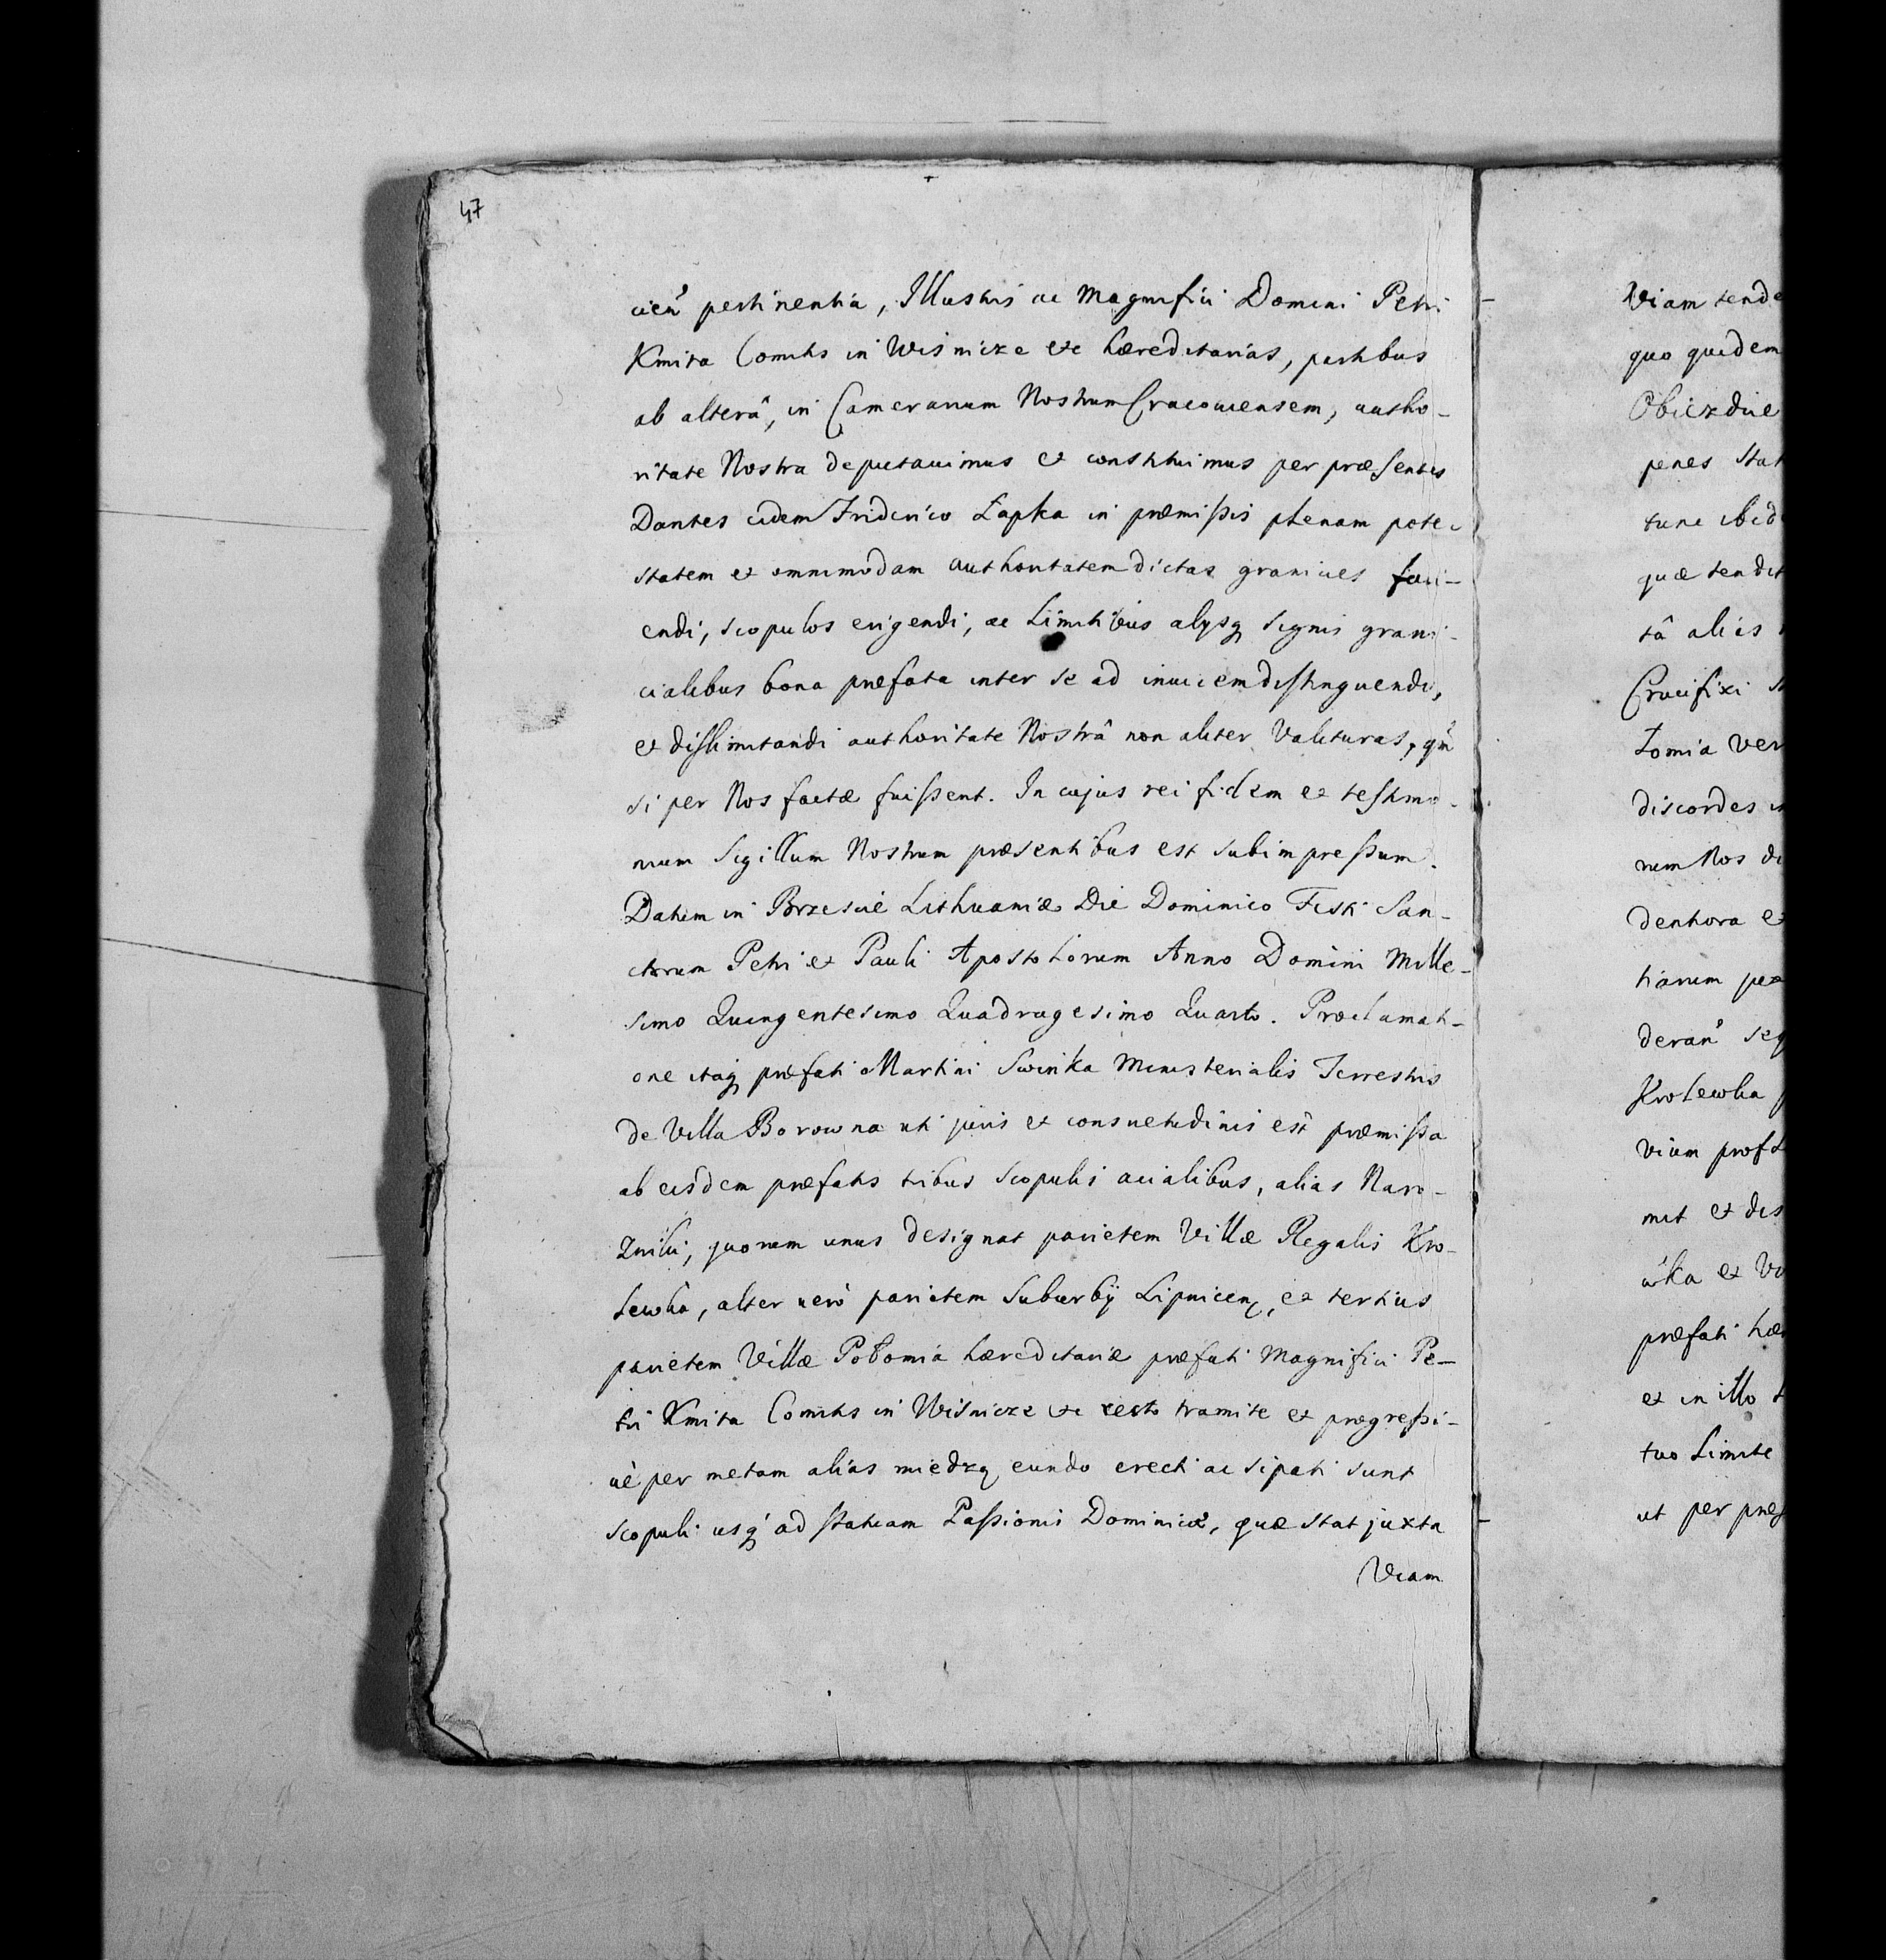 47
cień pertinentia, Illustris ac Magnifici Domini Petri
Kmita Comitis in Wisnicze etc hæreditarias, partibus
ab alterâ, in Camerarium Nostrum Cracouiensem, autho-
ritate Nostra deputauimus et constituimus per præsentes
Dantes eidem Friderico Łapka in præmissis plenam pote-
statem et omnimodam authoritatem dictas granicies faci-
endi, scopulos erigendi, ac Limitibus alysq signis grani-
cialibus bona præfata inter se ad inuicem distinguendi,
et dislimitandi authoritate Nostrâ non aliter Valituras, qm̃
si per Nos factæ fuissent. In cujus rei fidem et testimo-
nium Sigillum Nostrum præsentibus est subimpressum.
Datum in Brzescie Lithuaniæ Die Dominico Festi San-
ctorum Petri et Pauli Apostolorum Anno Domini Mille-
simo Quingentesimo Quadragesimo Quarto. Proclamati-
one itaq præfati Martini Swinka Ministerialis Terrestris
de Villa Borowna uti juris et consuetudinis est præmissa
ab eisdem præfatis tribus Scopulis acialibus, alias Naro-
Zniki, quorum unus designat parietem Villæ Regalis Kro-
lewka, alter verò parietem Suburbÿ Lipnicen, et tertius
parietem Villæ Połomia hæreditariæ præfati Magnifici Pe-
tri Kmita Comitis in Wisnicze etc recto tramite et progressi-
uè per metam alias miedzą eundo erecti ac sipati sunt
scopuli usq ad statuam Passionis Dominicæ, quæ stat juxta
Viam
Viam tende
quo quidem
Obiezdzie
penes stat
tunc ibid
quæ tendit
tâ alias
Crucifixi
Łomia ver
discordes
rum Nos
dentiora et
tiarum
Krolewka
viam
mit et dis
wka et
præfati hær
et in illo
tuo Limite
ut per præf